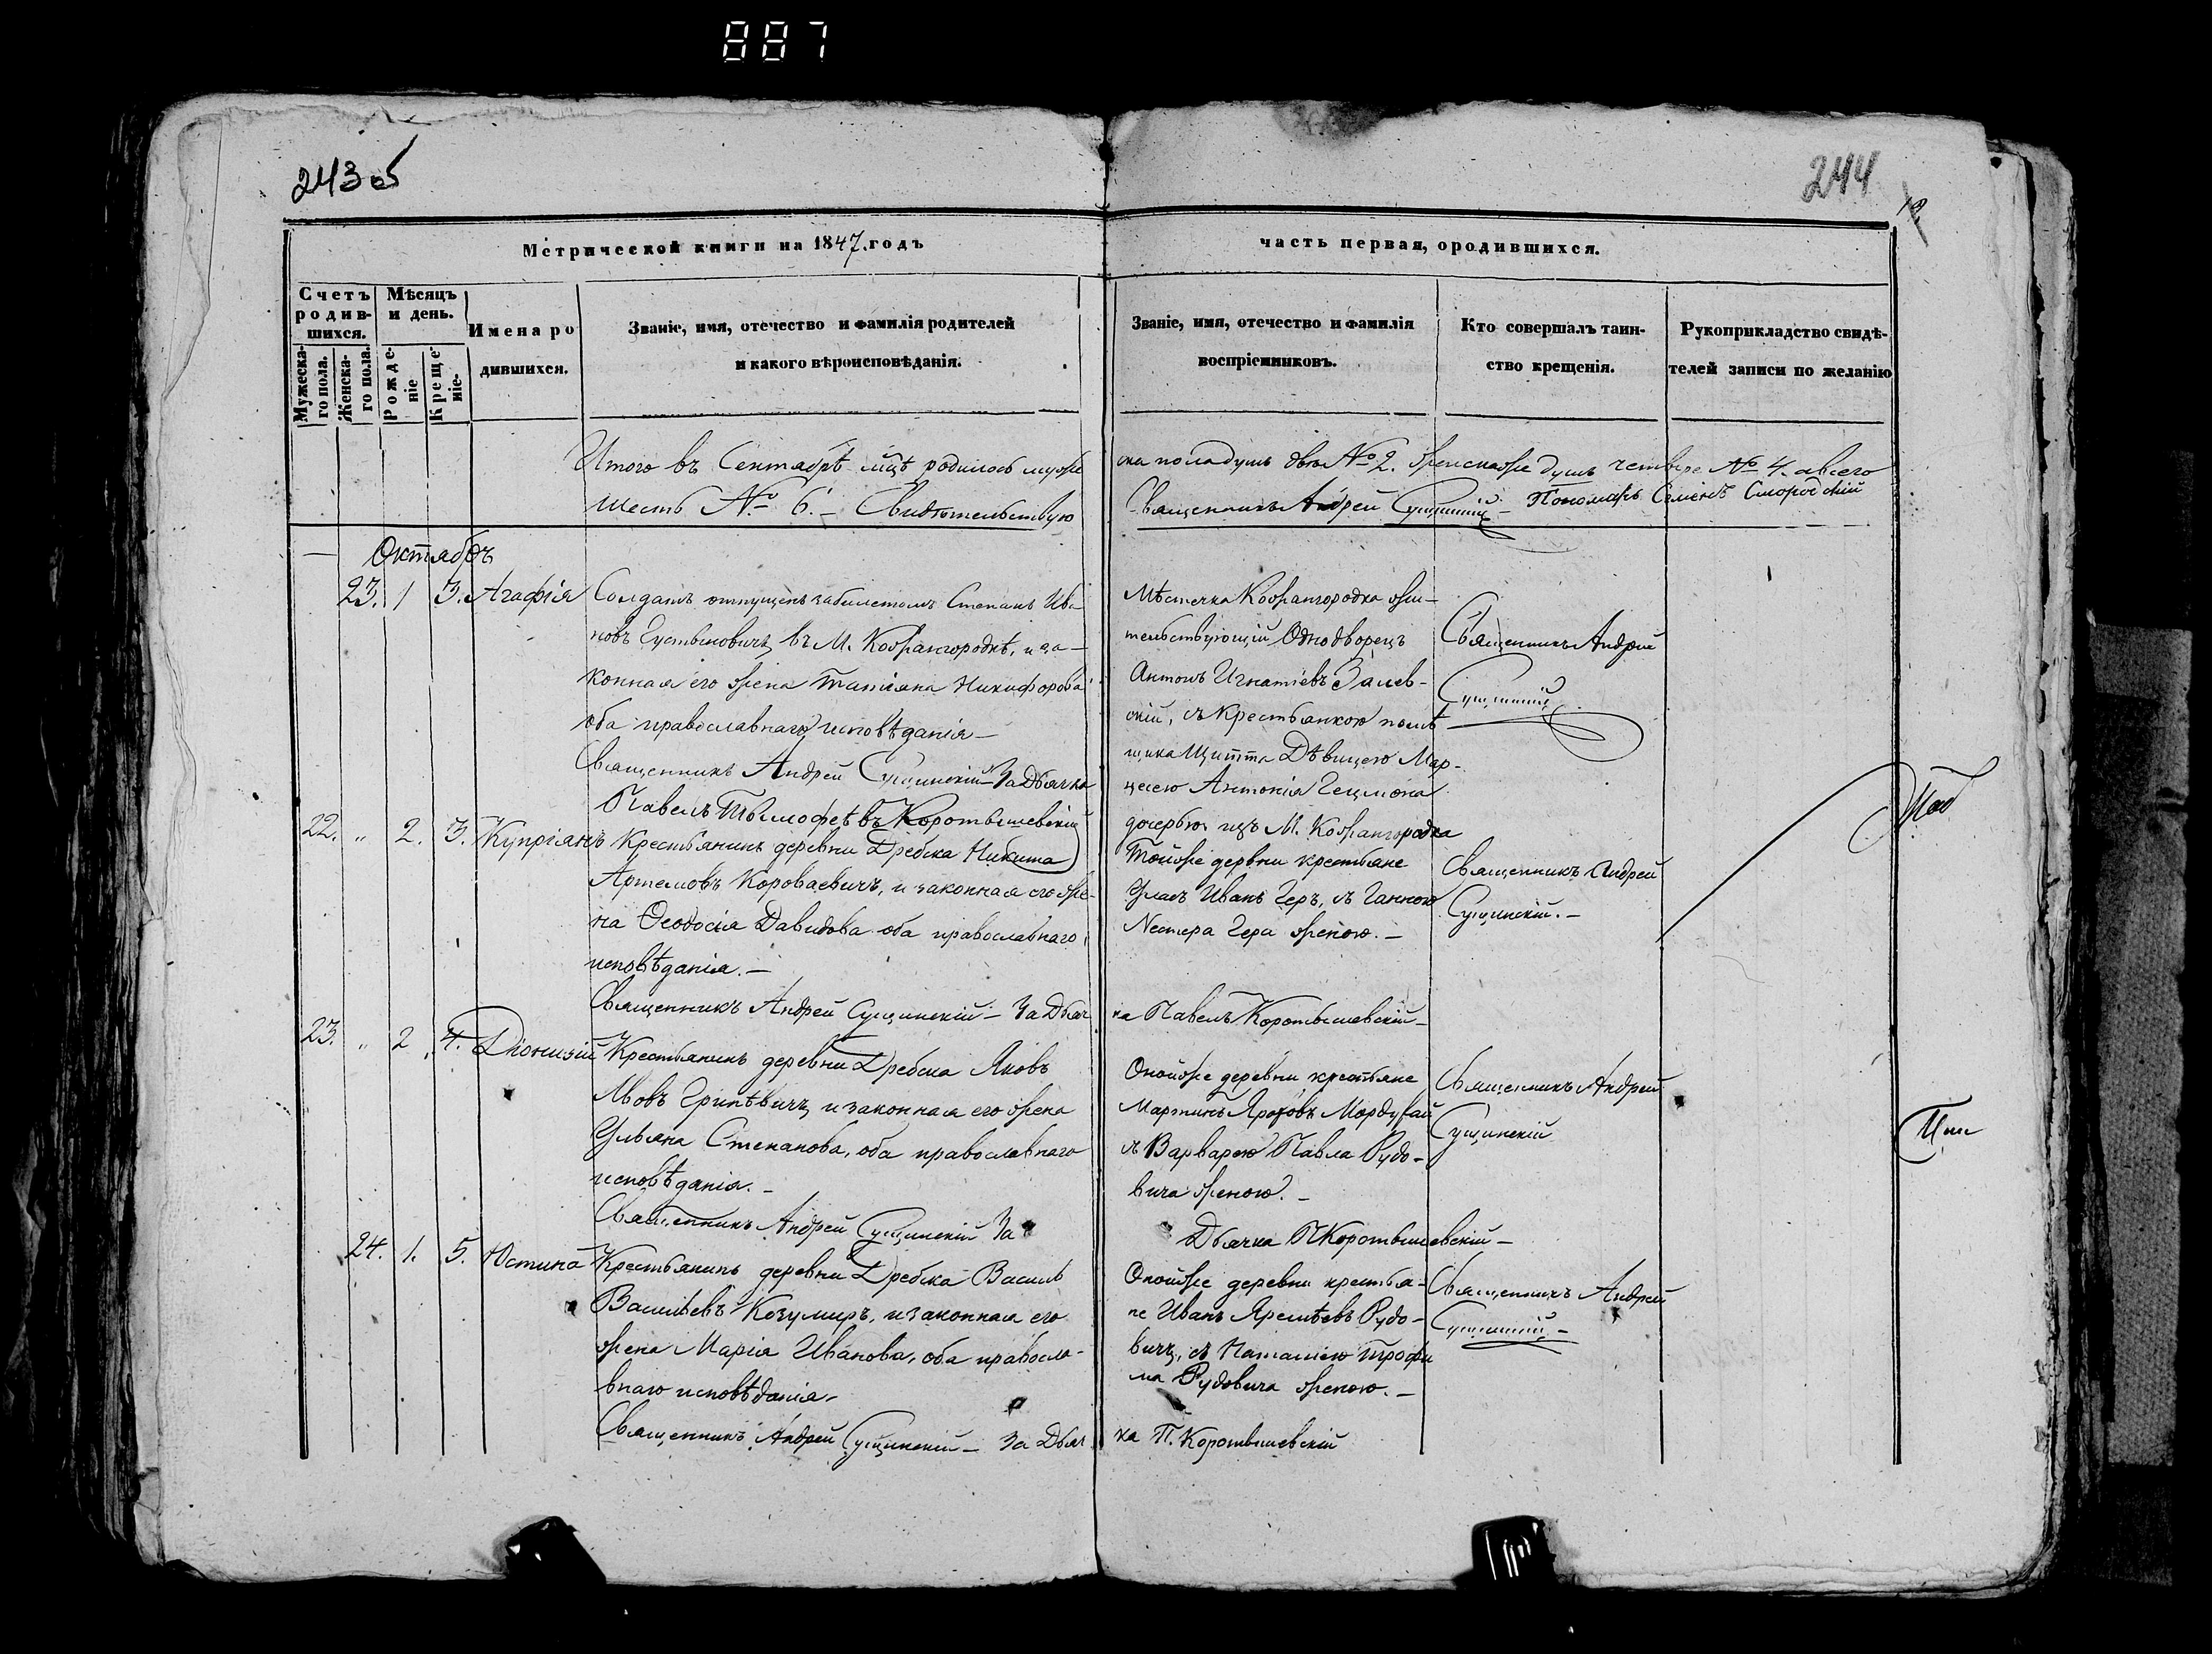 887
243 об
244
Метрической книги на 1847. годъ
часть первая, о родившихся.
Счетъ родив-
шихся.
Мужеска-
го пола.
Женска-
го пола.
Мѣсяцъ
и день.
Рожде-
ніе
Креще-
ніе.
Имена ро
дившихся.
Званіе, имя, отечество и фамилія родителей
и какого вѣроисповѣданія.
Званіе, имя, отечество и фамилія
воспріемниковъ.
Кто совершалъ таин-
ство крещенія.
Рукоприкладство свидѣ-
телей записи по желанію
Итого въ Сентябрѣ мцѣ родилось муже
ска пола душъ двѣ № 2. женскаже душъ четыре № 4. а всего
шесть № 6. – Свидѣтельствую
Священникъ Андрей Сущинскій – Пономарь Семенъ
Октябрь
23. 1 3. Агафія
Солдатъ отпущенъ забилетомъ Степанъ Ива-
новъ въ М. Кожангородкѣ, и за-
конная его жена Татіана Никифорова
оба православнаго исповѣданія –
Священникъ Андрей Сущинскій – За Дьячка
Павелъ Коротышевскій
Мѣстечка Кожангородка жи-
тельствующій Однодворецъ
Антонъ Игнатіевъ Залев-
скій, съ крестьянкою помѣ
щика Щитта Дѣвицею Мар-
целею Антонія
дочерью изъ М. Кожангородка
Священникъ Андрей
Сущинскій
22. „ 2. 3. Купріянъ
Крестьянинъ деревни Дребска Никита
Артемовъ Короваевичъ, и законная его же-
на Ѳеодосія Давидова оба православнаго
исповѣданія. –
Священникъ Андрей Сущинскій – За Дьяч
ка Павелъ Коротышевскій –
Тойже дервни крестьяне
Иванъ Геръ, съ Ганною
Нестера Гера женою. –
Священникъ Андрей
Сущинскій. –
23. „ 2. 4. Діонизій
Крестьянинъ деревни Дребска Яковъ
Львовъ Гриневичъ, и законная его жена
Ульяна Степанова, оба православнаго
исповѣданія. –
Священникъ Андрей Сущинскій За
Дьячка П Коротышевскій –
Онойже деревни крестьяне
Мартинъ
съ Варварою Павла Рудо-
вича женою. –
Священникъ Андрей
Сущинскій
24. 1. 5. Юстина
Крестьянинъ деревни Дребска Василь
Васильевъ Козумиръ, и законная его
жена Марія Иванова, оба правосла-
внаго исповѣданія –
Священникъ Андрей Сущинскій – За Дьяч
ка П. Коротышевскій
Онойже деревни крестья-
не Иванъ Рудо-
вичъ, съ Наталіею Трофи
ма Рудовича женою. –
Священникъ Андрей
Сущинскій –